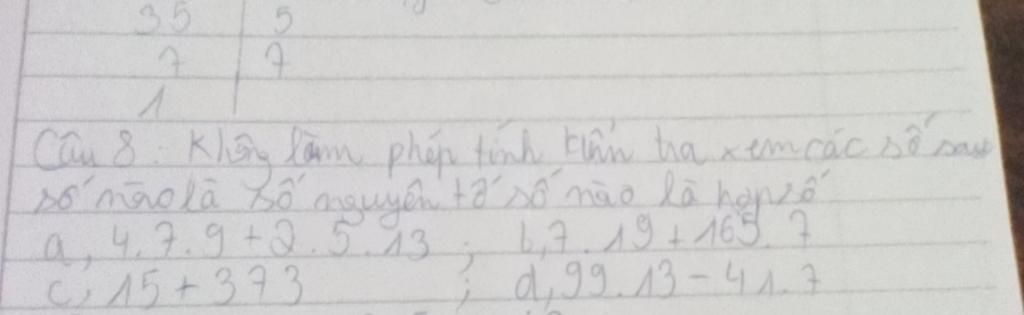 35 | 5
7 | 7
1
Câu 8: Không làm phép tính kiểm tra xem các số sau
số nào là số nguyên tố số nào là hợp số
a, 4.7.9+2.5.13; b,7.19+165.7
c, 15+373; d,99.13-41.7